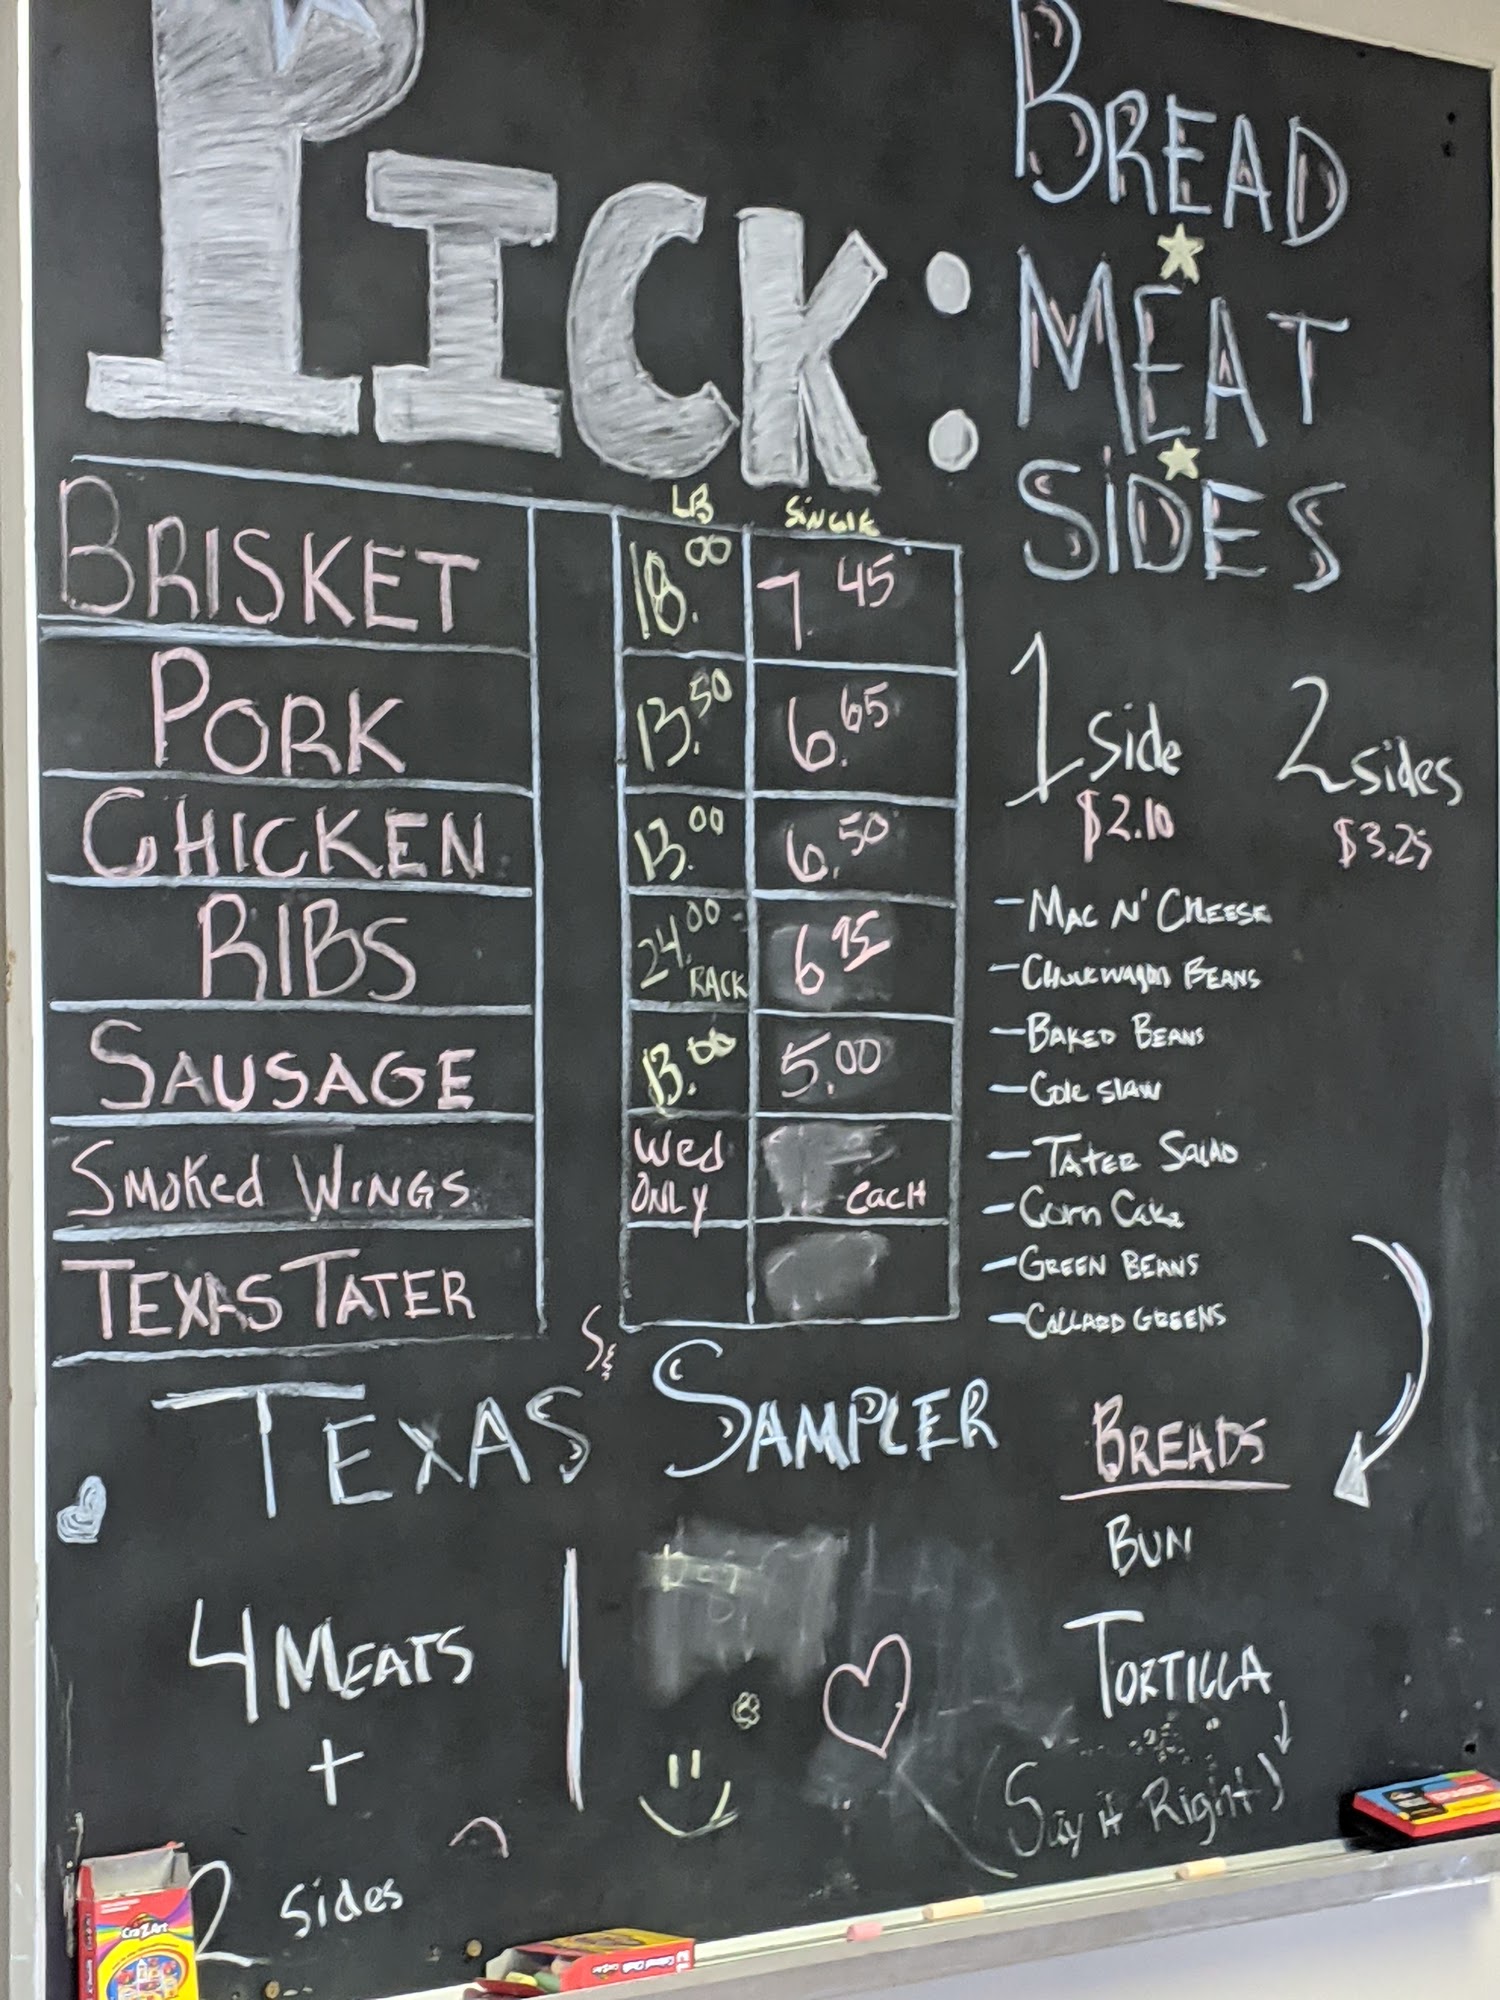 PICK:
BREAD
MEAT
SIDES
LB SINGLE
BRISKET 18.00 7 45
PORK 13.50 6.65
CHICKEN 13.00 6.50
RIBS 24.00 RACK 6 95
SAUSAGE 13.00 5.00
SMOKED WINGS Wed ONLY each
TEXAS TATER
1 side 2 sides
$2.10 $3.25
- MAC N' CHEESE
- CHUCKWAGON BEANS
- BAKED BEANS
- Cole slaw
- TATER SALAD
- Corn Cake
- GREEN BEANS
- COLLARD GREENS
TEXAS SAMPLER
4 MEATS
+
2 sides
BREADS
BUN
TORTILLA
(Say it Right)
Cra-Z-Art
Colored Chalk